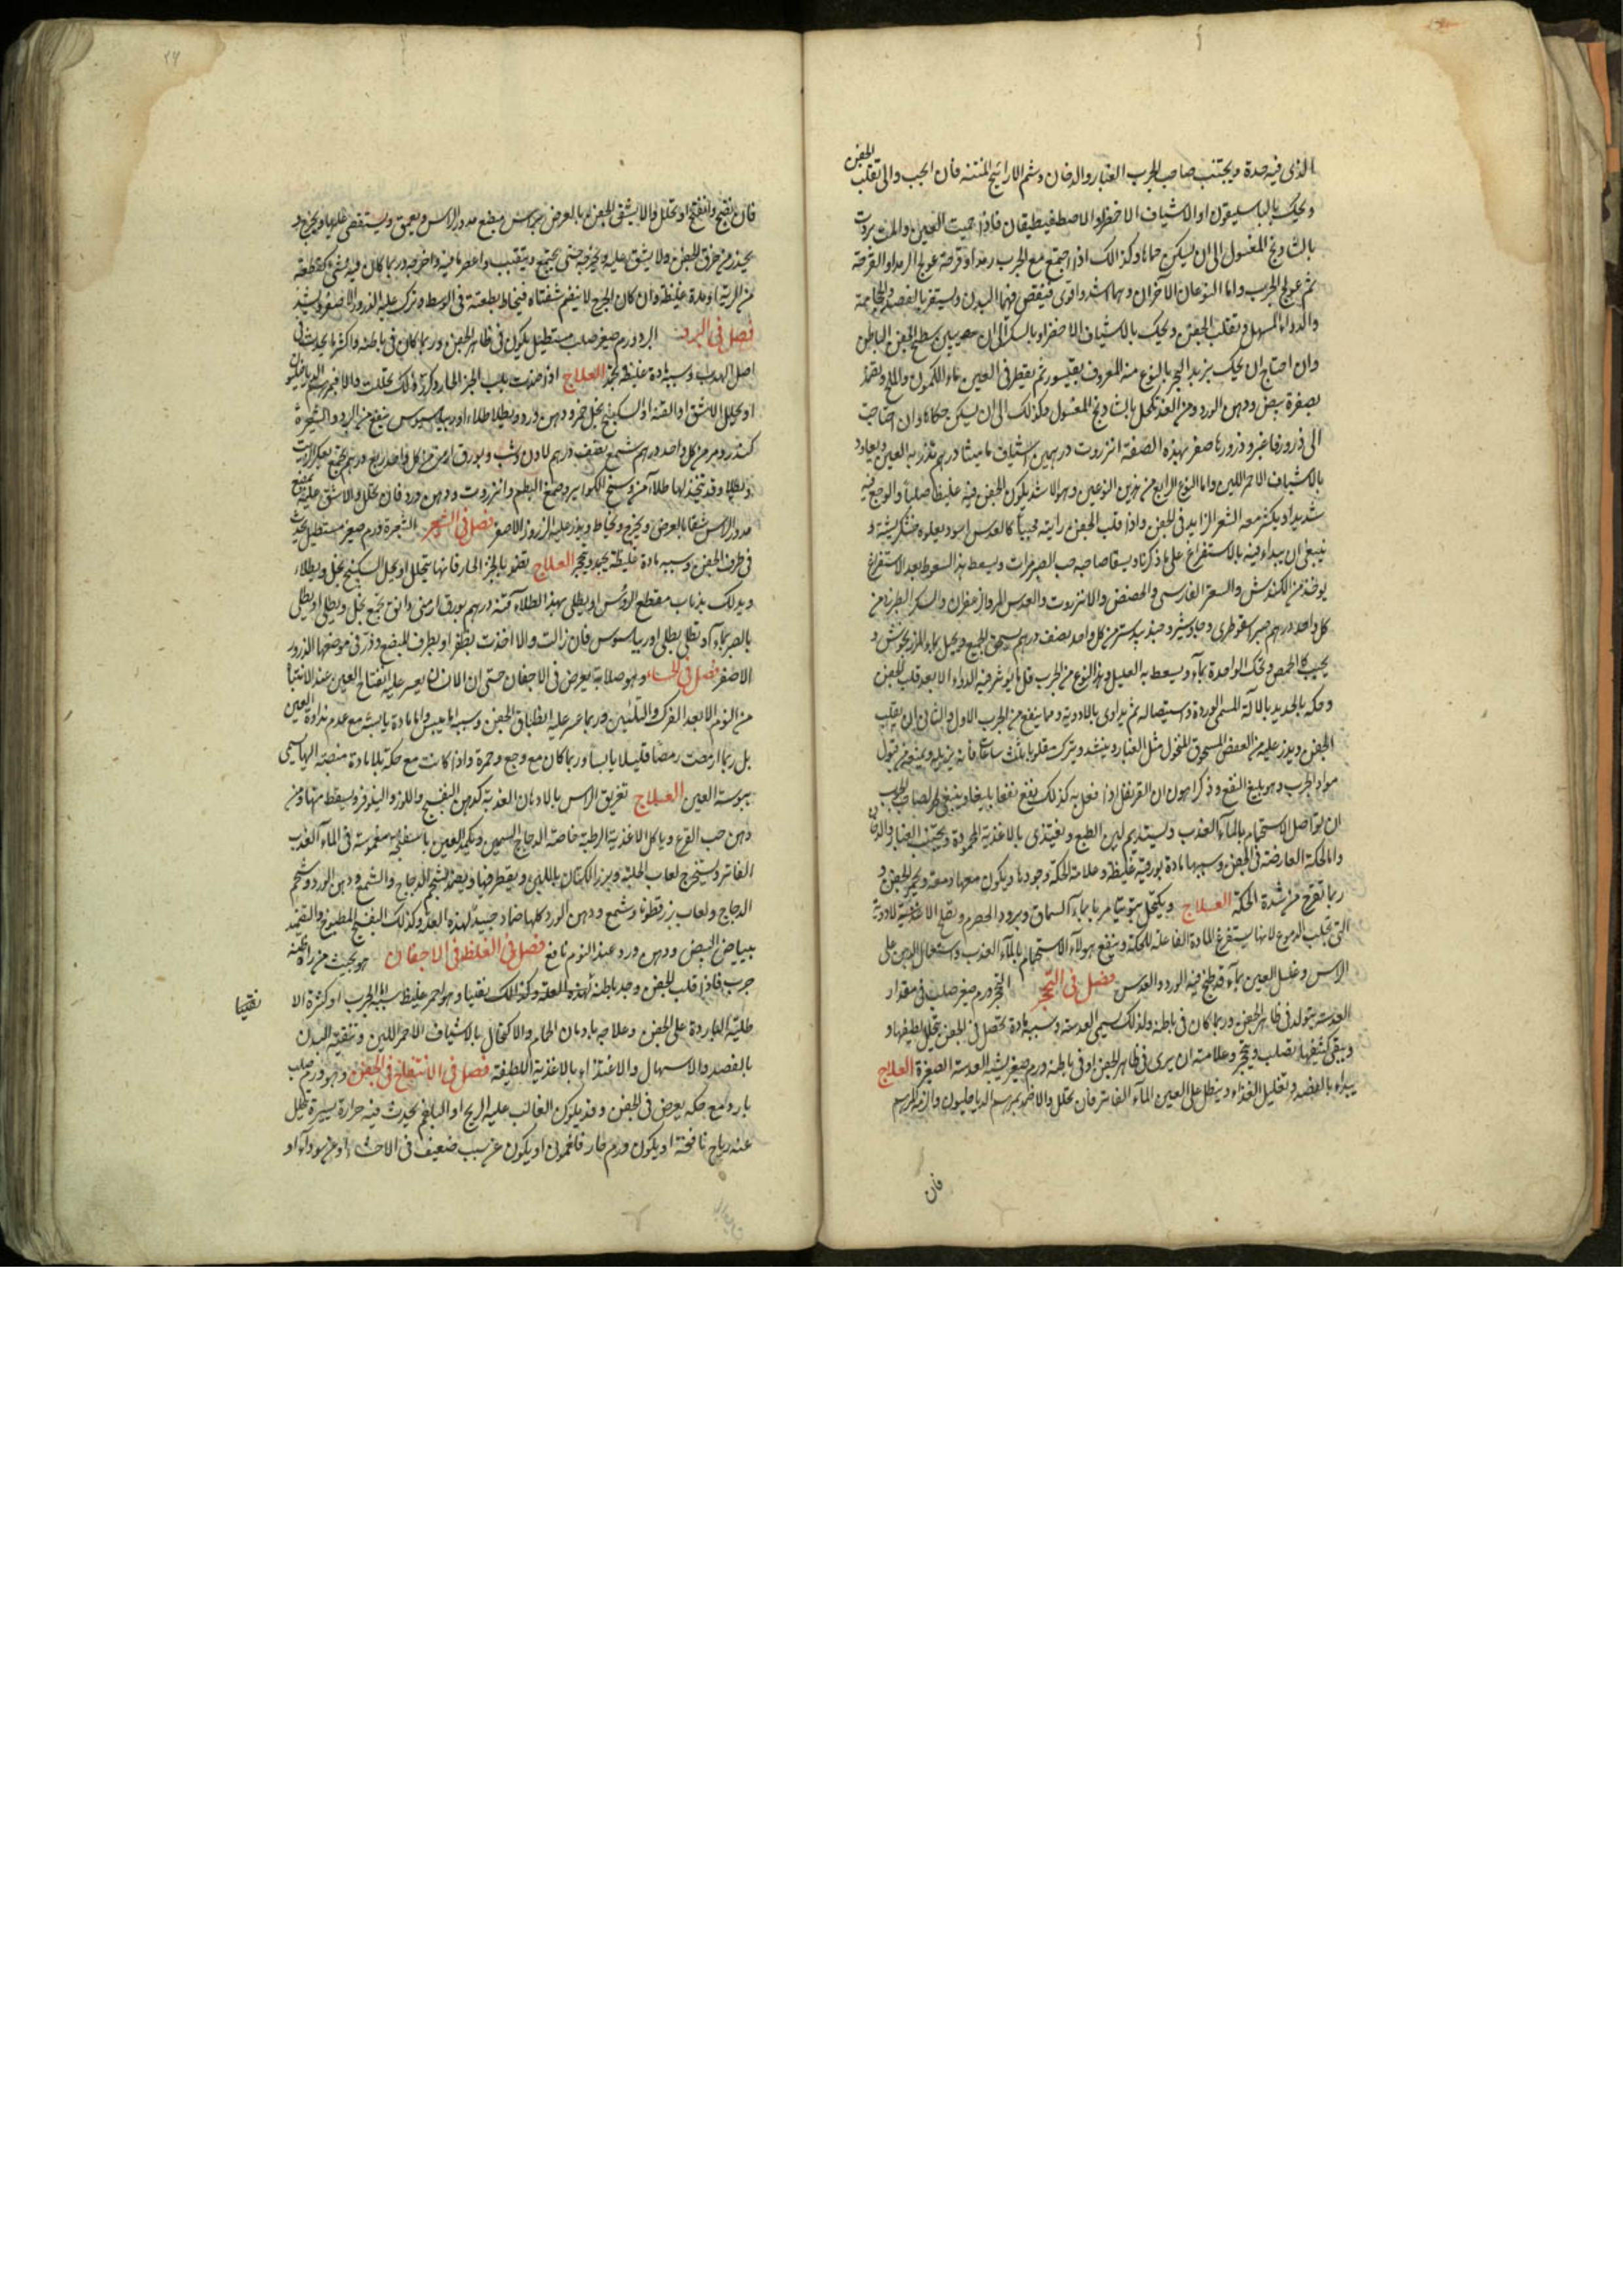 الذى فيه حدة ويجتنب صاحب الجرب الغبار والدخان وشم الارايح المنتنه فان انجب والا تقلب الجفن
ويحك بالباسليقون او الاشياف الاخضر او الاصطفيطيقان فاذا حميت العين والمث بردت
بالشادنج المغسول الى ان يسكن حماها وكذالك اذا اجتمع مع الجرب رمد او قرحة عولج الرمد او القرحة
ثم عولج الجرب واما النوعان الاخران وهما اشد واقوى فينقص فيهما البدن ويستفرغ بالفصد والحجامة
والدواء المسهل ويقلب الجفن ويحك بالاشياف الاخضر او بالسكر الى ان سطح الجفن الباطن
وان احتاج ان يحك بزبد البحر بالنوع منه المعروف بقيسور ثم يقطر فى العين ماء الكمون والملح ويضمد
بصفرة بيض ودهن الورد ومن الغد تكحل بالشادنج المغسول وكذلك الى ان يسكن حكاكها وان احتاجت
الى ذرور فاغبر وذرورها صغر بهذه الصفة انزروت درهمين اشياف ماميثا درهم تذر به العين ويعاود
بالاشياف الاحمر اللين واما النوع الرابع من هذين النوعين وهو الاشد يكون الجفن فيه غليظا صلبا والوجع فيه
شديدا ويكثر معه الشعر الزايد فى الجفن واذا قلب الجفن رايته محببا كالعدس اسود يعلوه خشكريشة و
ينبغى ان يبداء فيه بالاستفراغ على ما ذكرنا ويسقا صاحبه حب الصبر مرات ويسعط بهذا السعوط بعد الاستفراغ
يوخذ من الكندش والسعتر الفارسى والحضض والانزروت والعدس المر والزعفران والسكر الطبرزد من
كل واحد درهم صبر اسقوطرى وجاوشير وجندبيدستر من كل واحد نصف درهم يسحق الجميع ويعجل بماء المرزنجوش و
يحبب كالحمص ويحك الواحدة بماء ويسعط به العليل وهذا النوع من الجرب قل ما يوثر فيه الدواء الا بعد قلب الجفن
وحكه بالحديد بالآلة المسمى الوردة واستيصاله ثم يداوى بالادوية ومما ينفع من الجرب الاول والثانى ان يقلب
الجفن ويذر عليه من العفص المسحوق المنخول مثل الغبار ويشد ويترك مقلوبا ثلث ساعات فانه يزيله ويمنع من قبول
مواد الجرب وهو بليغ النفع وذكر اهرون ان القرنفل اذا فعل به كذلك نفع نفعا بليغا وينبغى لصاحب الجرب
ان يواصل الاستحمام بالماء العذب ويستديم لين الطبع ويغتذى بالاغذية المحمودة ويجتنب الغبار والدخان
واما الحكة العارضة فى الجفن وسببها مادة بورقية غليظة وعلامة الحكة وجودها ويكون معها دمعة ويحمر الجفن و
ربما تقرح من شدة الحكة العلاج ويكتحل بتوتيا مربا بماء السماق وبرود الحصرم ويصلح الاغذية للادوية
التى تجلب الدموع لانها يستفرغ المادة الفاعلة للحكة وينفع هولاء الاستحمام بالماء العذب واستعمال الدهن على
الراس وغسل العين بماء قد طبخ فيه الورد والعدس فصل فى التحجر التحجر ورم صغير صلب فى مقدار
العدسة يتولد فى ظاهر الجفن وربما كان فى باطنه ولذلك يسمى العدسة وسببه مادة تحصل فى الجفن يتحلل لطيفها و
ويبقى كثيفها يتصلب ويتحجر وعلامته ان يرى فى ظاهر الجفن او فى باطنه ورم صغير يشبه العدسة الصغيرة العلاج
يبداء بالفصد وتقليل الغذاء وينطل على العين الماء الفاتر فان تحلل والا ضمد بمرهم الدياخليون والزمه المرهم
فان
فان نضج وانفتح او تحلل والا يشق الجفن بالعرض براس مبضع مدور الراس ويعمق ويستقصى عليها ويخرج و
يحذر من خرق الجفن ولا يشق عليه ويخرجه حتى يجتمع ويتقبب واعصر ما فيه واخرجه وربما كان فيه شئ كقطعة
من الرية او مدة غليظة وان كان الجرح لا ينضم شفتاه فيخاط بطعنة فى الوسط وترك عليه الذرور الاصفر ويشد
فصل فى البرد البرد ورم صغير صلب مستطيل يكون فى ظاهر الجفن وربما كان فى باطنه واكثر ما يحدث فى
اصل الهدب وسببه مادة غليظة تحجر العلاج اذا ضمدت بلب الخبز الحار وكرر ذلك تحللت والا فمرهم الدياخليون
او يحلل الاشق او القنة او السكبينج بخل خمر ودهن ورد ويطلا طلاء اوربياسيوس ينفع من البرد والشعيرة
كندر ومر من كل واحد درهم شمع نصف درهم لادن وشب وبورق ارمنى من كل واحد ربع درهم يجمع بعكر الزيت
ويطلا وقد يتخذ لها طلاء من وسخ الكواير وصمغ البطم وانزروت ودهن ورد فان تحلل والا شق عليه بمبضع
مدور الراس شقا بالعرض ويخرج ويخاط ويذر عليه الزرور الاصفر فصل فى الشعير الشعيرة ورم صغير مستطيل يحدث
فى طرف الجفن وسببه مادة غليظة تجمد وتحجر العلاج يضمد بالخبز الحار فانها يتحلل او يحل السكبينج بخل ويطلاء
ويدلك بذباب مقطع الروس او يطلى بهذا الطلاء قنة درهم بورق ارمنى دانق يجمع بخل ويطلى او يطلى
بالصبر بماء او تطلى بطلى اوربياسوس فان زالت والا اخذت بظفر او بطرف المبضع وذر فى موضعها الذرور
الاصفر فصل فى الجساء وهو صلابة يعرض فى الاجفان حتى ان الانسان يعسر عليه انفتاح العين عند الانتباه
من النوم الا بعد الفرك والتليين وربما عسر عليه انطباق الجفن وسببه اما يبس واما مادة يابسة مع عدم نداوة العين
بل ربما ارمصت رمصا قليلا يابسا وربما كان مع وجع وحمرة واذا كانت مع حكة بلا مادة منصبة اليها يسمى
يبوسة العين العلاج تغريق الراس بالادهان العذبة كدهن البنفسج واللوز والنيلوفر ويسقط منها ومن
دهن حب القرع وياكل الاغذية الرطبة خاصة الدجاج السمين ويكمد العين باسفنجة مغموسة فى الماء العذب
الفاتر ويستخرج لعاب الحلبة وبزر الكتان باللبن ويقطر فيها ويضمد بشحم الدجاج والشمع ودهن الورد وشحم
الدجاج ولعاب بزرقطونا وشمع ودهن الورد كلها ضماد جيد لهذه العلة وكذلك البنفسج المطبوخ والتضمد
ببياض البيض ودهن ورد عند النوم نافع فصل فى الغلظ فى الاجفان هو بحيث من راه ظنه
جرب فاذا قلب الجفن وجد باطنه لهذه العلة وكذلك نقيا وهو احمر غليظ سببه الجرب او كثرة الا
نقيا
طلية الباردة على الجفن وعلاجه بادمان الحمام والاكتحال بالاشياف الاحمر اللين وتنقية البدن
بالفصد والاسهال والاغتذاء بالاغذية اللطيفة فصل فى الانتفاخ فى الجفن وهو ورم صلب
بارد مع حكة يعرض فى الجفن وقد يكون الغالب عليه الريح او البلغم يحدث فيه حرارة يسيرة
عنه رياح نافخة او يكون ورم حار فلغمونى او يكون عن سبب ضعيف فى الاحشاء او عن سوداء او